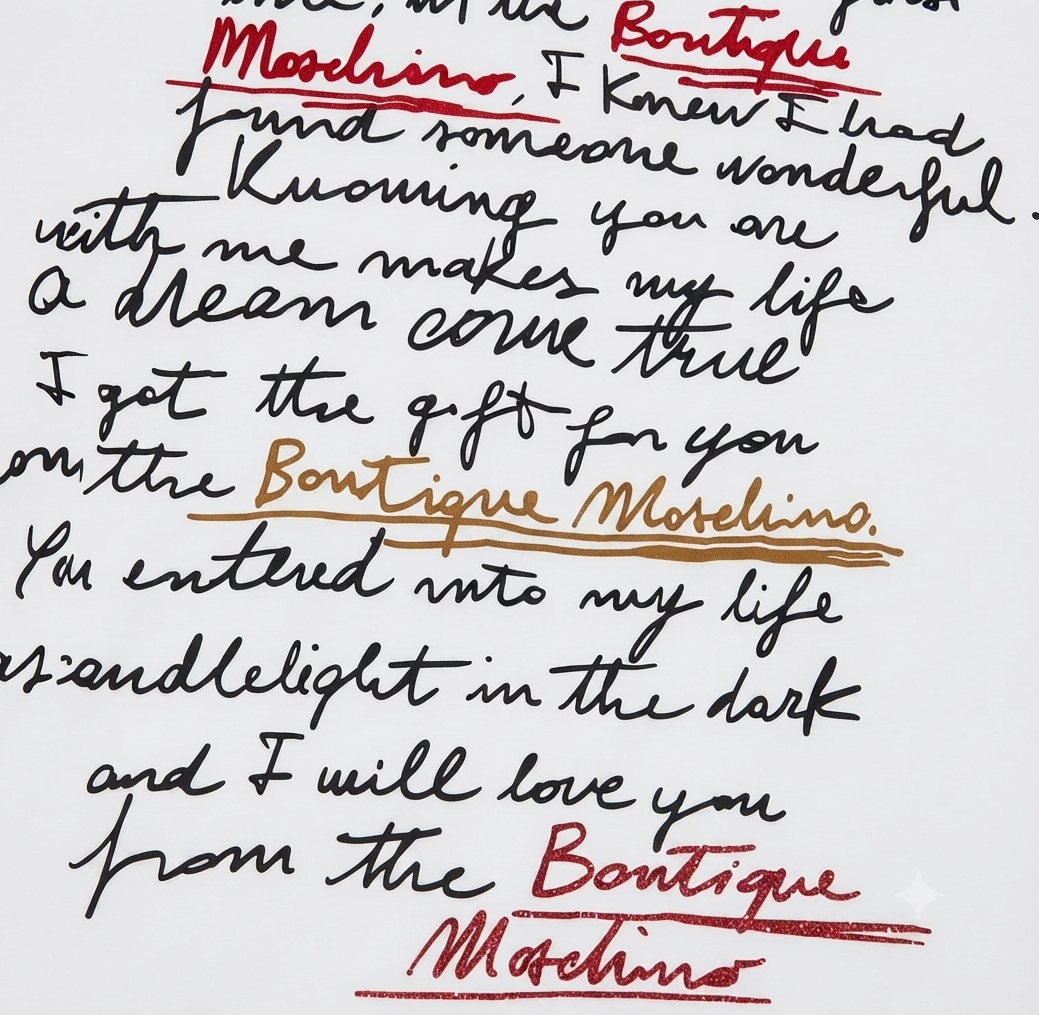 in the Boutique
Moschino, I Knew I had
found someone wonderful.
Knowing you are
with me makes my life
a dream come true
I got the gift for you
on the Boutique Moschino.
You entered into my life
as candlelight in the dark
and I will love you
from the Boutique
Moschino